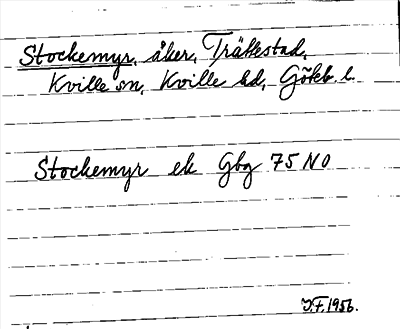 Stockemyr, åker, Trättestad,
Kville sn, Kville hd, Göteb. l.
Stockemyr ek Gbg 75 NO
J.F. 1956.